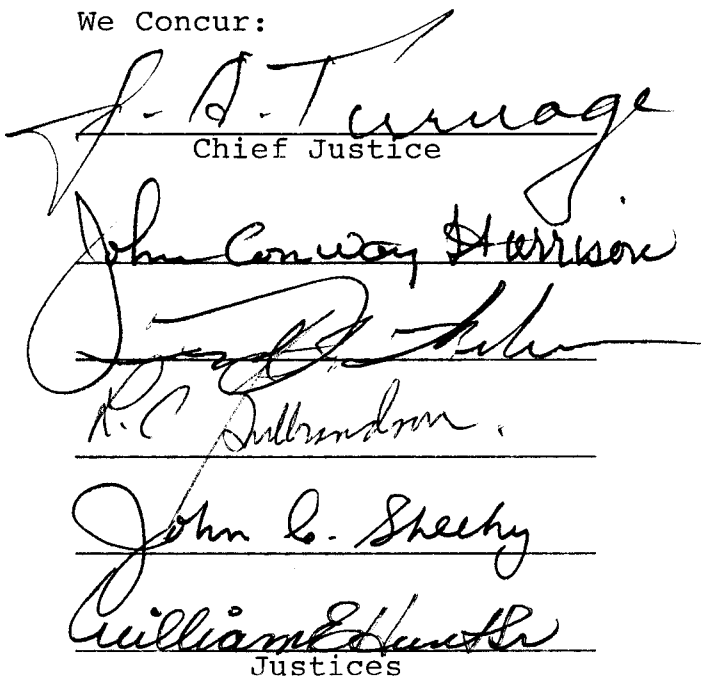 We Concur:
J. A. Turnage
Chief Justice
John Conway Harrison
L. C. Gulbrandson.
John C. Sheehy
William E. Hunt Sr
Justices